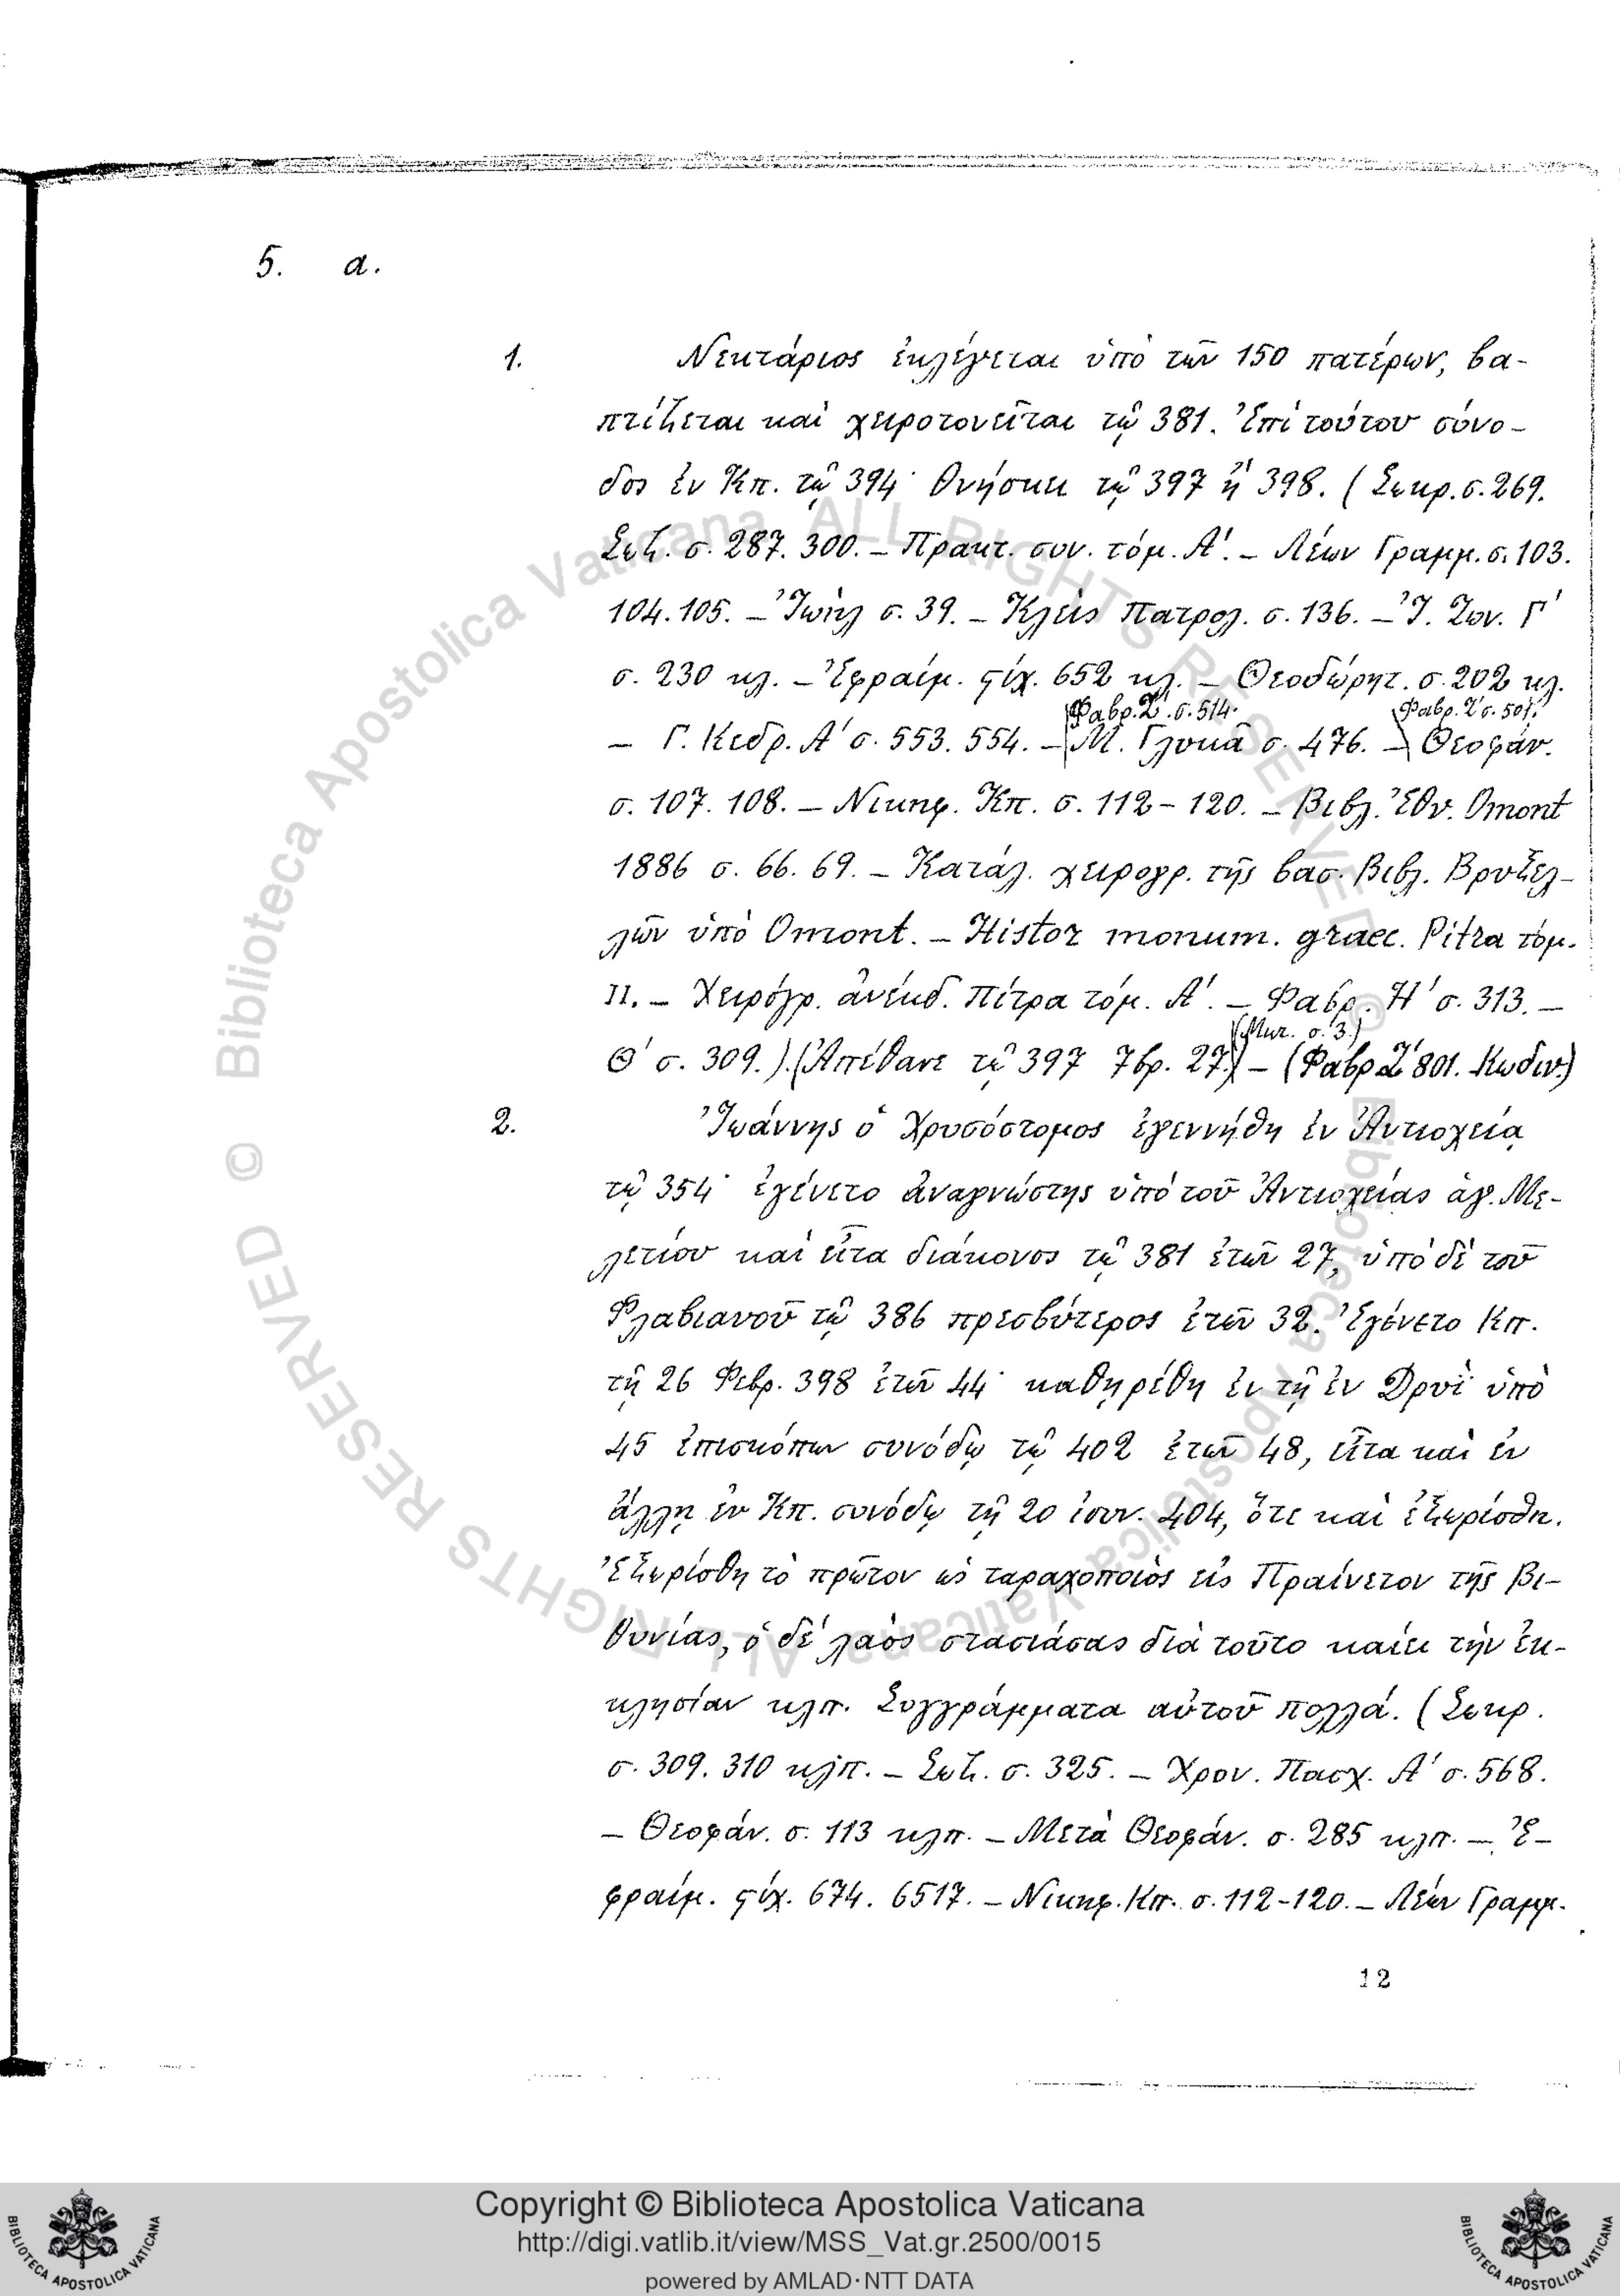 5. α.
1. Νεκτάριος ἐκλέγεται ὑπὸ τῶν 150 πατέρων, βα-
πτίζεται καὶ χειροτονεῖται τῷ 381. Ἐπὶ τούτου σύνο-
δος ἐν Κπ. τῷ 394· θνήσκει τῷ 397 ἢ 398. (Σωκρ. σ. 269.
Σωζ. σ. 287. 300. – Πρακτ. συν. τόμ. Α΄. – Λέων Γραμμ. σ. 103.
104. 105. – Ἰωὴλ σ. 39. – Κλεὶς Πατρολ. σ. 136. – Ἰ. Ζων. Γ΄
σ. 230 κλ. – Ἐφραίμ. ϛίχ. 652 κλ. – Θεοδώρητ. σ. 202 κλ.
Φαβρ. Ζ΄. σ. 514. Φαβρ. Ζ΄ σ. 501.
– Γ. Κεδρ. Α΄ σ. 553. 554. – Μ. Γλυκᾶ σ. 476. – Θεοφάν.
σ. 107. 108. – Νικηφ. Κπ. σ. 112 – 120. – Βιβλ. Ἐθν. Omont
1886 σ. 66. 69. – Κατάλ. χειρογρ. τῆς βασ. βιβλ. Βρυξελ-
λῶν ὑπὸ Omont. – Histor monum. graec. Pitra τόμ.
II. – Χειρόγρ. ἀνέκδ. Πίτρα τόμ. Α΄. – Φαβρ. Η΄ σ. 313. –
(Μικ. σ. 3.)
Θ΄ σ. 309.). (Ἀπέθανε τῷ 397 7βρ. 27.) – (Φαβρ Ζ΄ 801. Κωδιν.)
2. Ἰωάννης ὁ Χρυσόστομος ἐγεννήθη ἐν Ἀντιοχείᾳ
τῷ 354· ἐγένετο ἀναγνώστης ὑπὸ τοῦ Ἀντιοχείας ἁγ. Με-
λετίου καὶ εἶτα διάκονος τῷ 381 ἐτῶν 27, ὑπὸ δὲ τοῦ
Φλαβιανοῦ τῷ 386 πρεσβύτερος ἐτῶν 32. Ἐγένετο Κπ.
τῇ 26 Φεβρ. 398 ἐτῶν 44· καθῃρέθη ἐν τῇ ἐν Δρυῒ ὑπὸ
45 ἐπισκόπων συνόδῳ τῷ 402 ἐτῶν 48, εἶτα καὶ ἐν
ἄλλῃ ἐν Κπ. συνόδῳ τῇ 20 ἰουν. 404, ὅτε καὶ ἐξωρίσθη.
Ἐξωρίσθη τὸ πρῶτον ὡς ταραχοποιὸς εἰς Πραίνετον τῆς Βι-
θυνίας, ὁ δὲ λαὸς στασιάσας διὰ τοῦτο καίει τὴν ἐκ-
κλησίαν κλπ. Συγγράμματα αὐτοῦ πολλά. (Σωκρ.
σ. 309. 310 κλπ. – Σωζ. σ. 325. – Χρον. Πασχ. Α΄ σ. 568.
– Θεοφάν. σ. 113 κλπ. – Μετὰ Θεοφάν. σ. 285 κλπ. – Ἐ-
φραίμ. ϛίχ. 674. 6517. – Νικηφ. Κπ. σ. 112-120. – Λέων Γραμμ.
12
© Biblioteca Apostolica Vaticana ALL RIGHTS RESERVED © Biblioteca Apostolica Vaticana ALL RIGHTS RESERVED
Copyright © Biblioteca Apostolica Vaticana
http://digi.vatlib.it/view/MSS_Vat.gr.2500/0015
powered by AMLAD·NTT DATA
BIBLIOTECA APOSTOLICA VATICANA
BIBLIOTECA APOSTOLICA VATICANA